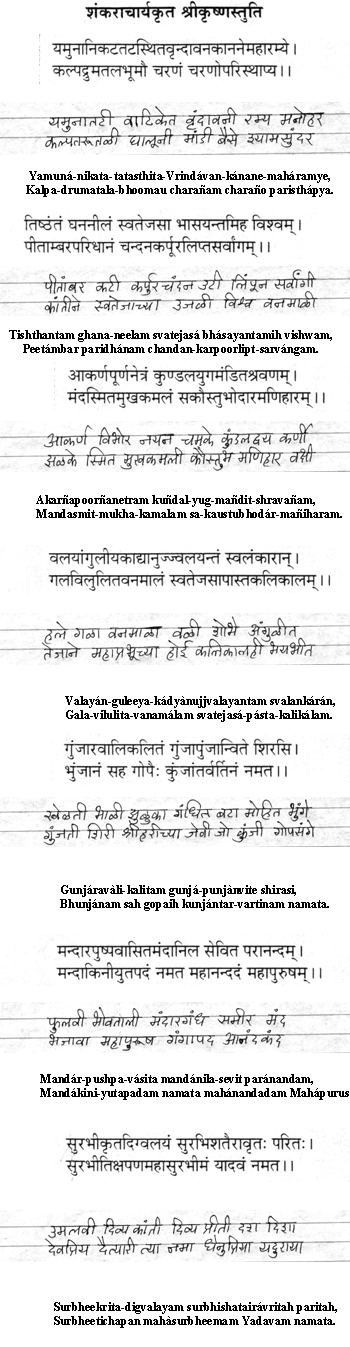 शंकराचार्यकृत श्रीकृष्णस्तुति
यमुनानिकटतटस्थितवृन्दावनकाननेमहारम्ये।
कल्पद्रुमतलभूमौ चरणं चरणोपरिस्थाप्य।।
यमुनातटी वाटिकेत वृंदावनी रम्य मनोहर
कल्पतरूतळी घालूनी मांडी बैसे श्यामसुंदर
Yamuná-nikata-tatasthita-Vrindávan-kánane-maháramye,
Kalpa-drumatala-bhoomau charañam charaño paristhápya.
तिष्ठंतं घननीलं स्वतेजसा भासयन्तमिह विश्वम्।
पीताम्बरपरिधानं चन्दनकर्पूरलिप्तसर्वांगम्।।
पीतांबर कटी कर्पुर चंदन उटी लिंपून सर्वांगी
कांतीने स्वतेजाच्या उजळी विश्व वनमाळी
Tishthantam ghana-neelam svatejasá bhásayantamih vishwam,
Peetámbar paridhánam chandan-karpoorlipt-sarvángam.
आकर्णपूर्णनेत्रं कुण्डलयुगमंडितश्रवणम्।
मंदस्मितमुखकमलं सकौस्तुभोदारमणिहारम्।।
आकर्ण विभोर नयन चमुके कुंडलद्वय कर्णी
झळके स्मित मुखकमली कौस्तुभ मणिहार वक्षी
Akarñapoorñanetram kuñdal-yug-mañdit-shravañam,
Mandasmit-mukha-kamalam sa-kaustubhodár-mañiharam.
वलयांगुलीयकाद्यानुज्ज्वलयन्तं स्वलंकारान्।
गलविलुलितवनमालं स्वतेजसापास्तकलिकालम्।।
हुले गळा वनमाळा वळी शोभे अंगुळीत
तेजाने महाप्रभूच्या होई कलिकालही भयभीत
Valayán-guleeya-kádyànujjvalayantam svalankárán,
Gala-vilulita-vanamálam svatejasá-pásta-kalikálam.
गुंजारवालिकलितं गुंजापुंजान्विते शिरसि।
भुंजानं सह गोपैः कुंजांतर्वर्तिनं नमत।।
खेळती भाळी झुळुका गंधित बटा मोहित भुंगे
गुंजती शिरी श्रीहरीच्या जेवी जो कुंजी गोपसंगे
Gunjáravàli-kalitam gunjá-punjànvite shirasi,
Bhunjánam sah gopaih kunjántar-vartinam namata.
मन्दारपुष्पवासितमंदानिल सेवित परानन्दम्।
मन्दाकिनीयुतपदं नमत महानन्ददं महापुरुषम्।।
फुलवी भोवताली मंदारगंध समीर मंद
भजावा महापुरूष गंगापद आनंदकंद
Mandár-pushpa-vásita mandánila-sevit paránandam,
Mandákini-yutapadam namata mahánandadam Mahápurus
सुरभीकृतदिग्वलयं सुरभिशतैरावृतः परितः।
सुरभीतिक्षपणमहासुरभीमं यादवं नमत।।
उमलवी दिव्य कांती दिव्य प्रीती दश दिशा
देवप्रिय दैत्यारी त्या नमा धेनुप्रिया यदुराया
Surbheekrita-digvalayam surbhishatairávritah paritah,
Surbheetichapan mahàsurbheemam Yadavam namata.